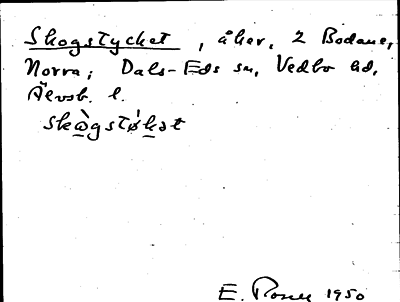 Skogstycket, åker, 2 Bodane,
Norra; Dals-Eds sn, Vedbo hd,
Älvsb. l.
skò̱gstø̍ḵət
E. Rosell 1950